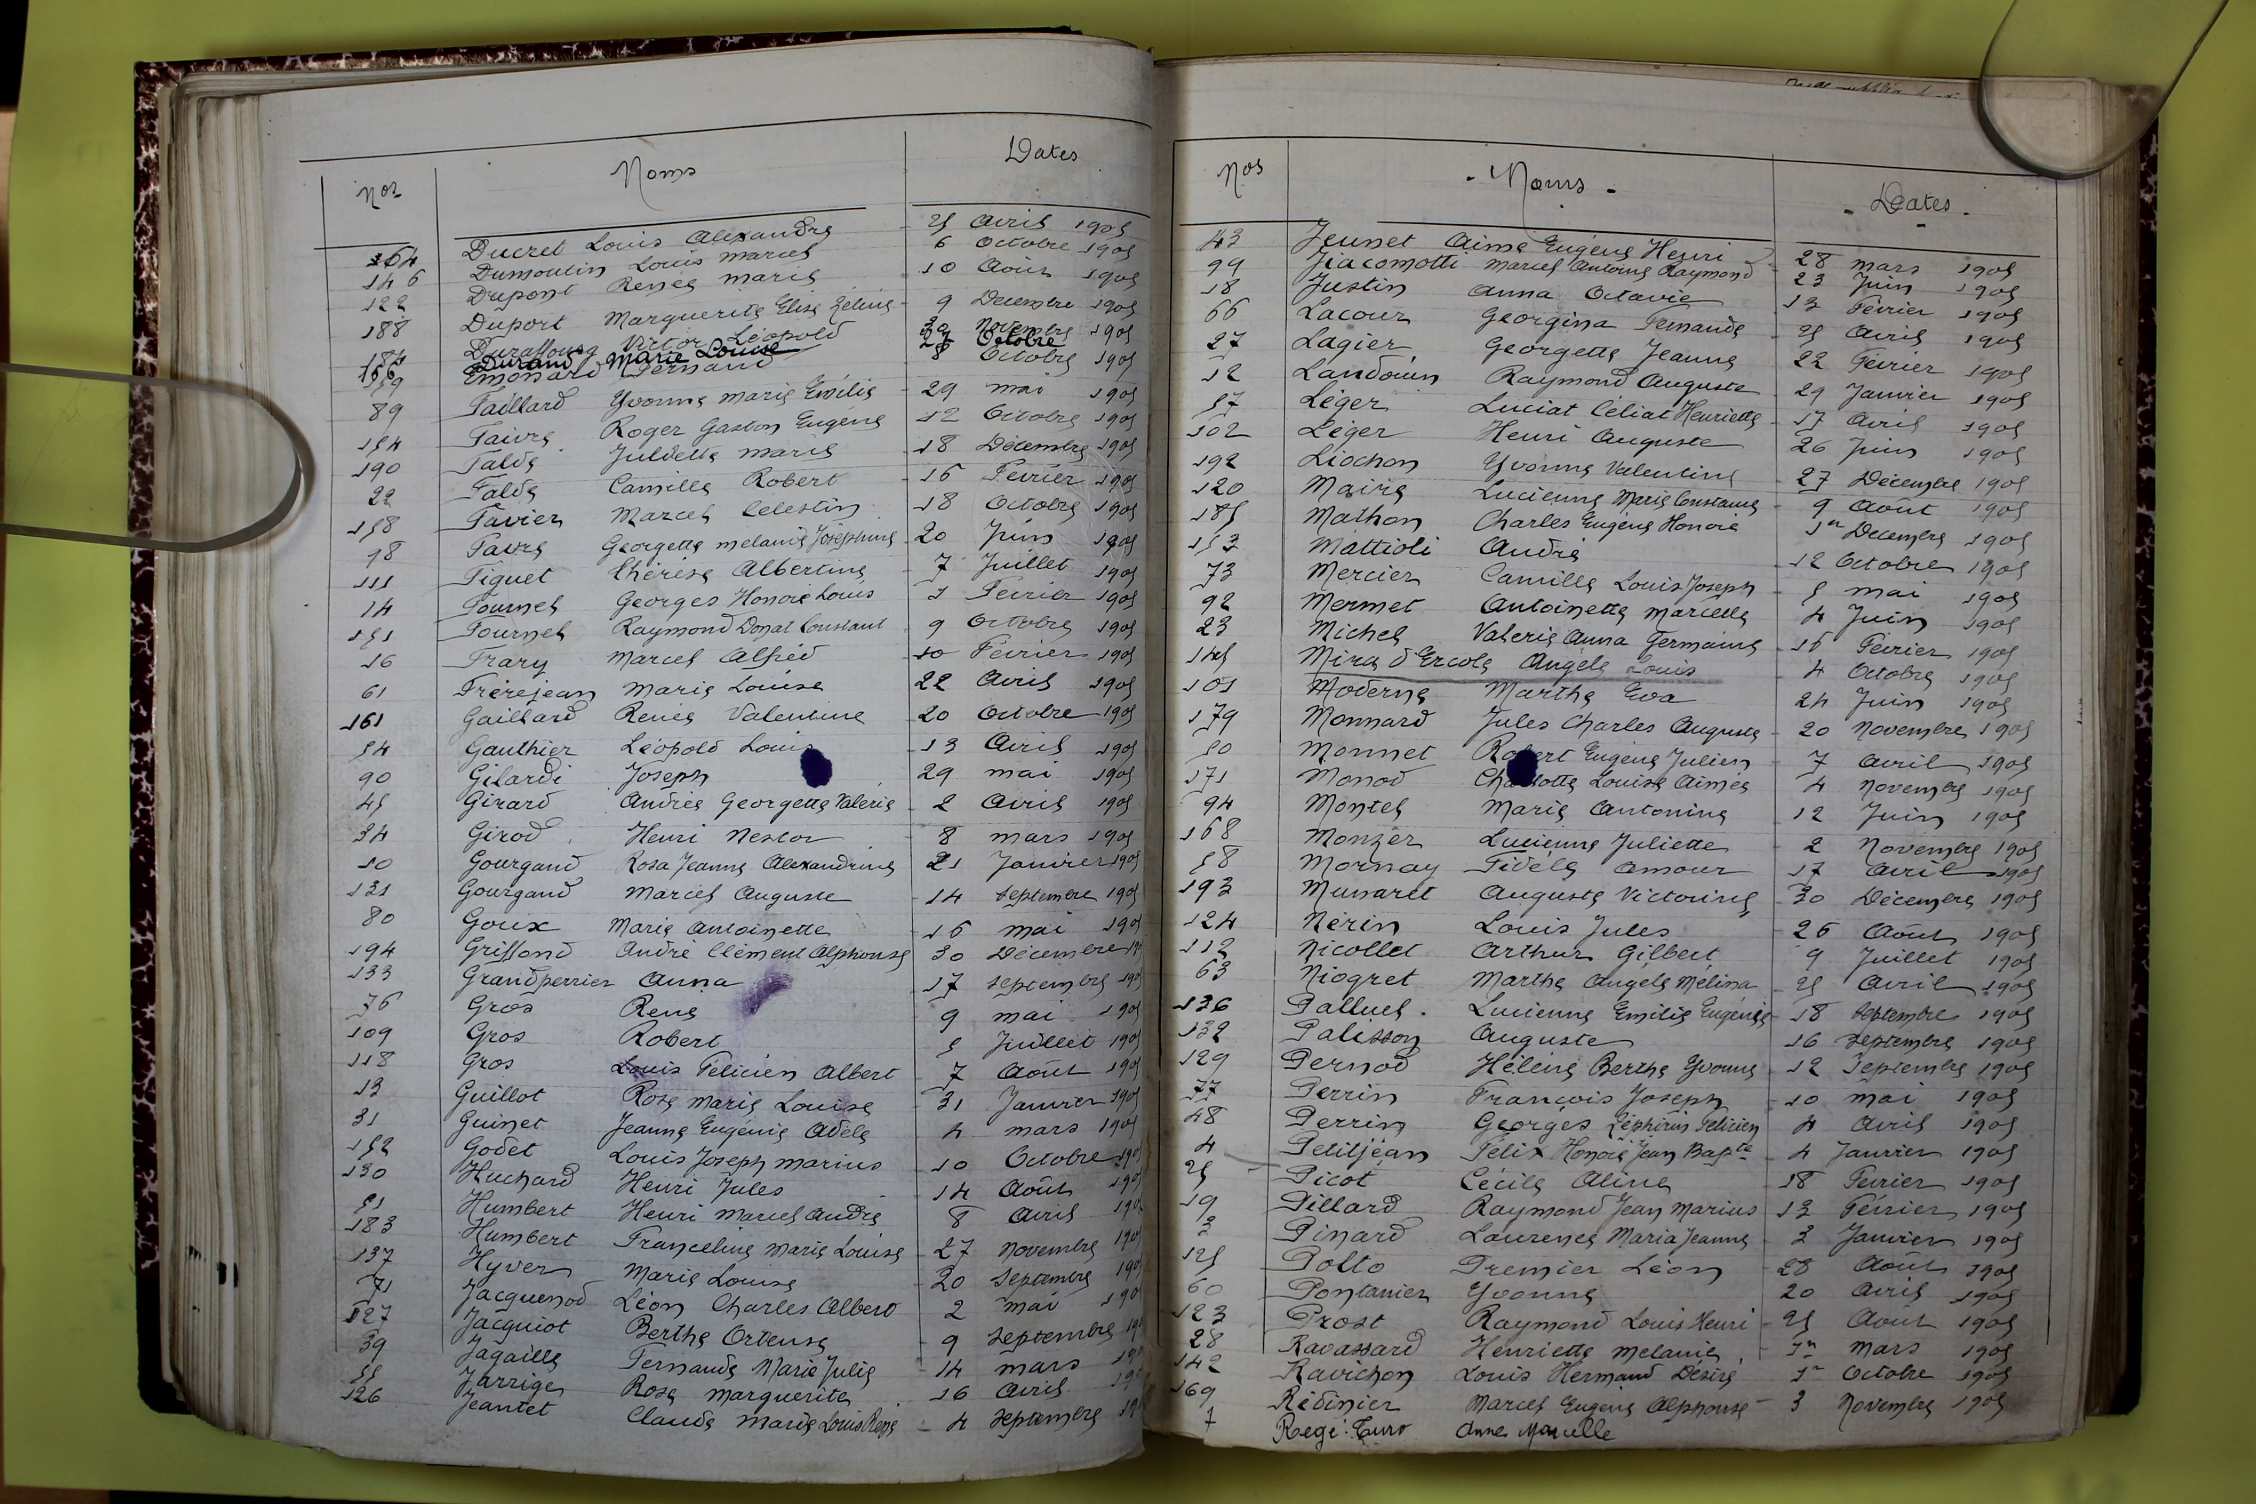 Nos Noms Dates
164 Ducret Louis Alexandre 25 Avril 1905
146 Dumoulin Louis Marcel 6 Octobre 1905
122 Dupont Renée Marie 10 Août 1905
188 Duport Marguerite Elise Zélina 9 Décembre 1905
184 Duraffourg Victor Léopold 30 Novembre 1905
166 Durand Marie Louise 27 Octobre
159 Emonard Fernand 8 Octobre 1905
89 Faillard Yvonne Marie Emélie 29 mai 1905
154 Faivre Roger Gaston Eugène 12 Octobre 1905
190 Falda Juldette Marie 18 Décembre 1905
22 Falda Camille Robert 16 Février 1905
158 Favier Marcel Célestin 18 Octobre 1905
98 Favre Georgette Mélanie Joséphine 20 Juin 1905
111 Figuet Thérèse Albertine 7 Juillet 1905
14 Fournel Georges Honoré Louis 1 Février 1905
151 Fournel Raymond Donat Constant 9 Octobre 1905
16 Frary Marcel Alfred 10 Février 1905
61 Frèrejean Marie Louise 22 Avril 1905
161 Gaillard Renée Valentine 20 Octobre 1905
54 Gauthier Léopold Louis 13 Avril 1905
90 Gilardi Joseph 29 mai 1905
45 Girard Andrée Georgette Valérie 2 Avril 1905
34 Girod Henri Nestor 8 mars 1905
10 Gourgand Rosa Jeanne Alexandrine 21 Janvier 1905
131 Gourgand Marcel Auguste 14 Septembre 1905
80 Goux Marie Antoinette 16 mai 1905
194 Griffond André Clément Alphonse 30 Décembre
133 Grandperrier Anna 17 Septembre 1905
76 Gros René 9 mai 1905
109 Gros Robert 5 Juillet 1905
118 Gros Louis Félicien Albert 7 Août 1905
13 Guillot Rose Marie Louise 31 Janvier 1905
31 Guinet Jeanne Eugénie Adèle 4 mars 1905
152 Godet Louis Joseph Marius 10 Octobre 1905
130 Huchard Henri Jules 14 Août
51 Humbert Henri Marcel André 8 Avril
183 Humbert Franceline Marie Louise 27 Novembre
137 Hyver Marie Louise 20 Septembre
71 Jacquenod Léon Charles Albert 2 mai
127 Jacquiot Berthe Ortense 9 Septembre
39 Jagaille Fernande Marie Julie 14 mars
55 Jarrige Rose Marguerite 16 Avril
126 Jeantet Claude Marie Louis René 4 Septembre
Nos Noms Dates
43 Jeunet Aimé Eugène Henri 28 mars 1905
99 Jiacomotti Marcel Antoine Raymond 23 Juin 1905
18 Justin Anna Octavie 13 Février 1905
66 Lacour Georgina Fernande 25 Avril 1905
27 Lagier Georgette Jeanne 22 Février 1905
12 Landouin Raymond Auguste 29 Janvier 1905
57 Léger Luciat Céliat Henriette 17 Avril 1905
102 Léger Henri Auguste 26 Juin 1905
192 Liochon Yvonne Valentine 27 Décembre 1905
120 Maire Lucienne Marie Constance 9 Août 1905
185 Mathon Charles Eugène Honoré 1er Décembre 1905
153 Mattioli André 12 Octobre 1905
73 Mercier Camille Louis Joseph 5 mai 1905
92 Mermet Antoinette Marcelle 4 Juin 1905
23 Michel Valérie Anna Germaine 16 Février 1905
145 Mira d'Ercole Angèle Louis 4 Octobre 1905
101 Moderne Marthe Eva 24 Juin 1905
179 Monnard Jules Charles Auguste 20 Novembre 1905
50 Monnet Robert Eugène Julien 7 Avril 1905
171 Monod Charlotte Louise Aimée 4 Novembre 1905
94 Montel Marie Antonine 12 Juin 1905
168 Monzer Lucienne Juliette 2 Novembre 1905
58 Mornay Fidèle Amour 17 Avril 1905
193 Munaret Auguste Victorine 30 Décembre 1905
124 Nérin Louis Jules 26 Août 1905
112 Nicollet Arthur Gilbert 9 Juillet 1905
63 Niogret Marthe Angèle Mélina 25 Avril 1905
136 Palluel Lucienne Emilie Eugénie 18 Septembre 1905
132 Palisson Auguste 16 Septembre 1905
129 Pernod Hélène Berthe Yvonne 12 Septembre 1905
77 Perrin François Joseph 10 mai 1905
48 Perrin Georges Zéphirin Félicien 4 Avril 1905
4 Petitjean Félix Honoré Jean Bapte 4 Janvier 1905
25 Picot Cécile Aline 18 Février 1905
19 Pillard Raymond Jean Marius 13 Février 1905
3 Pinard Laurence Maria Jeanne 3 Janvier 1905
125 Polto Premier Léon 28 Août 1905
60 Pontanier Yvonne 20 Avril 1905
123 Prost Raymond Louis Henri 25 Août 1905
28 Ravassard Henriette Mélanie 1er mars 1905
142 Ravichon Louis Hermand Désiré 1er Octobre 1905
169 Rédinier Marcel Eugène Alphonse 3 Novembre 1905
7 Regé-Turo Anne Marcelle